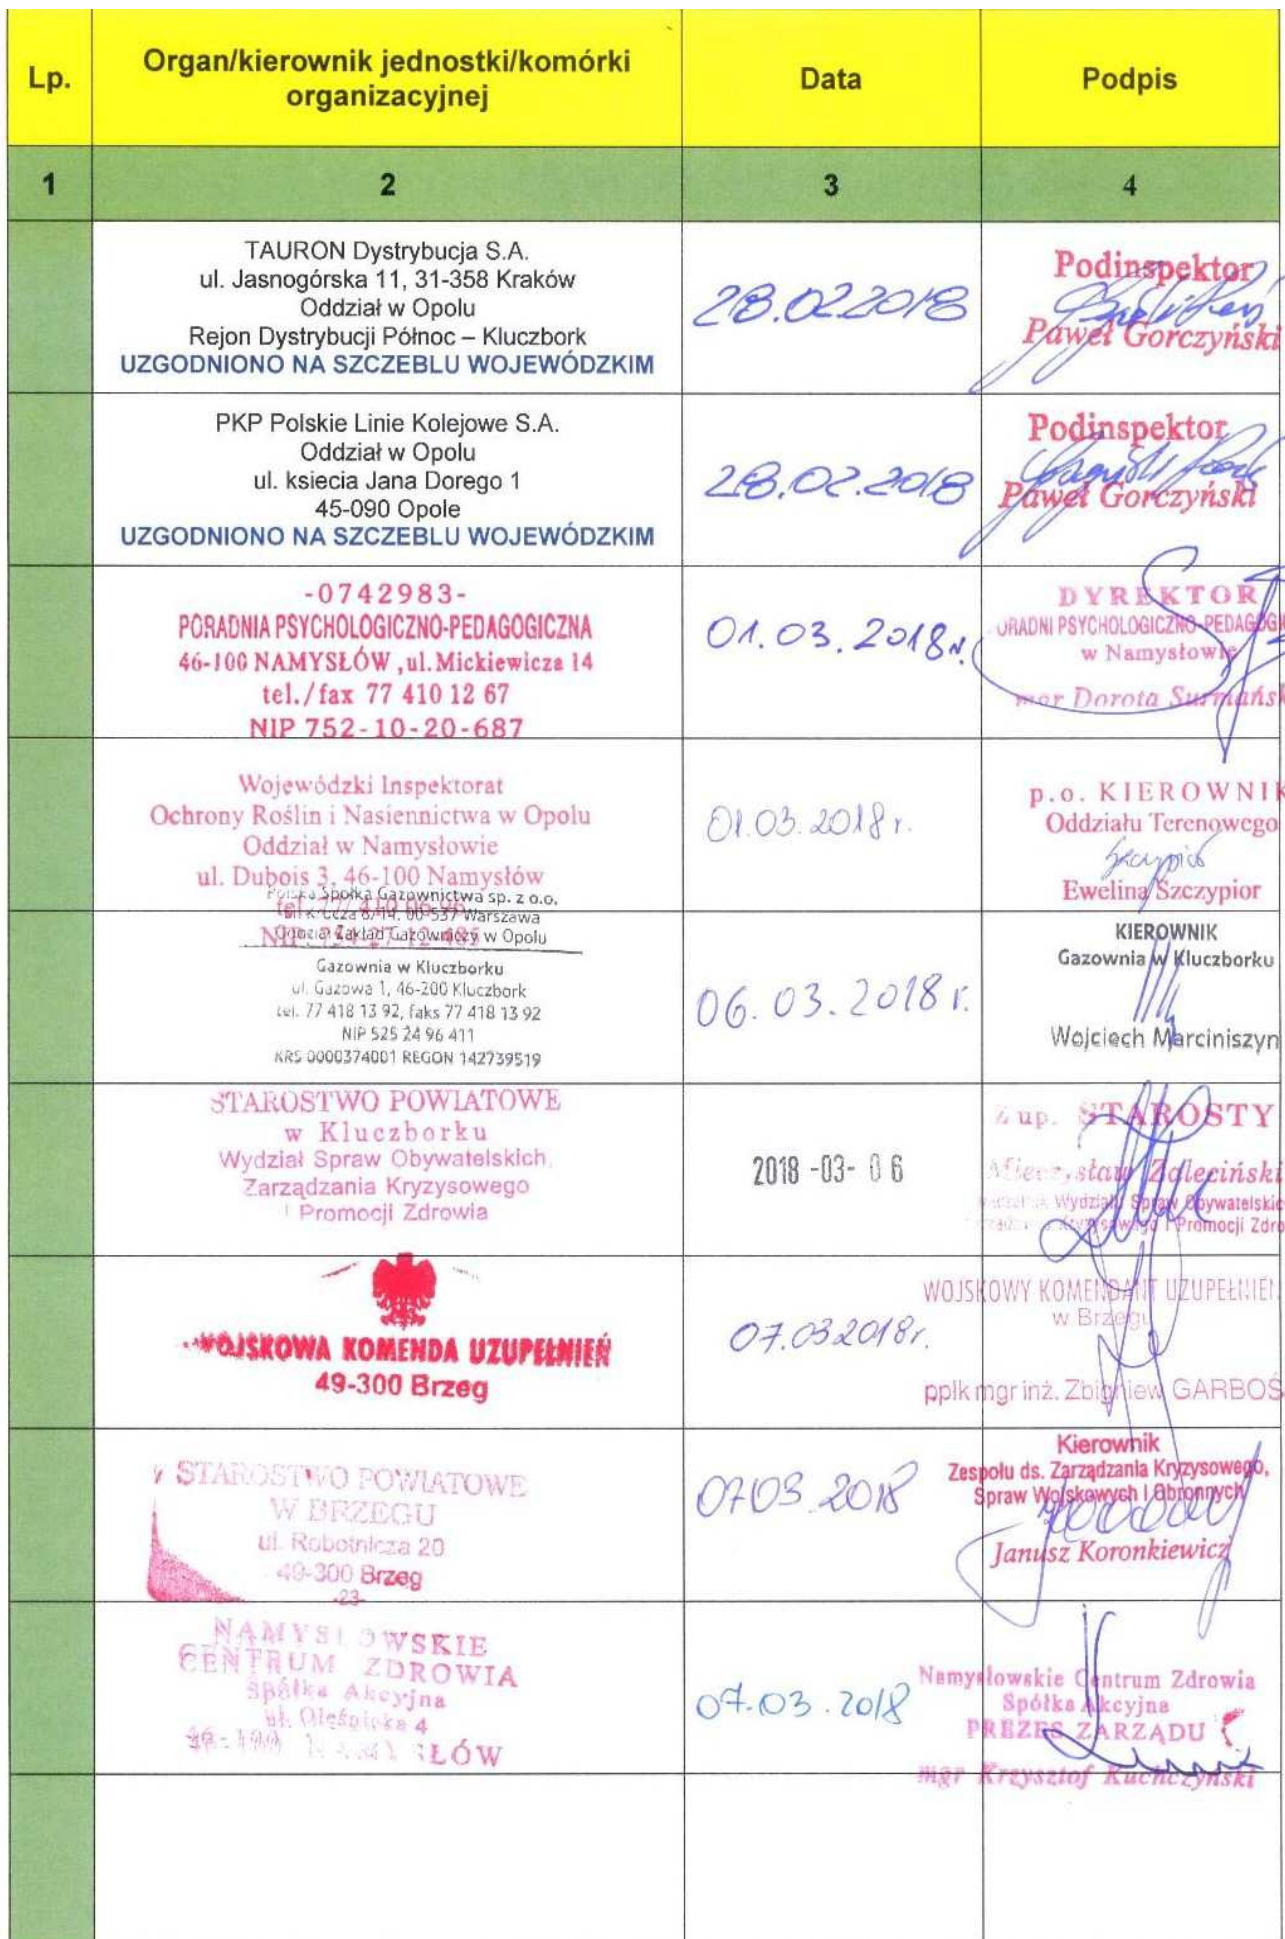 Lp.
Organ/kierownik jednostki/komórki
organizacyjnej
Data
Podpis
1
2
3
4
TAURON Dystrybucja S.A.
ul. Jasnogórska 11, 31-358 Kraków
Oddział w Opolu
Rejon Dystrybucji Północ – Kluczbork
UZGODNIONO NA SZCZEBLU WOJEWÓDZKIM
28.02.2018
Podinspektor
Paweł Gorczyński
PKP Polskie Linie Kolejowe S.A.
Oddział w Opolu
ul. ksiecia Jana Dorego 1
45-090 Opole
UZGODNIONO NA SZCZEBLU WOJEWÓDZKIM
28.02.2018
Podinspektor
Paweł Gorczyński
-0742983-
PORADNIA PSYCHOLOGICZNO-PEDAGOGICZNA
46-100 NAMYSŁÓW, ul. Mickiewicza 14
tel./fax 77 410 12 67
NIP 752-10-20-687
01.03.2018r.
DYREKTOR
ORADNI PSYCHOLOGICZNO-PEDAGOGI
w Namysłowie
mgr Dorota Surmańsk
Wojewódzki Inspektorat
Ochrony Roślin i Nasiennictwa w Opolu
Oddział w Namysłowie
ul. Dubois 3, 46-100 Namysłów
01.03.2018r.
p.o. KIEROWNIK
Oddziału Terenowego
Szczypior
Ewelina Szczypior
Polska Spółka Gazownictwa sp. z o.o.
00-537 Warszawa
Oddział Zakład Gazowniczy w Opolu
Gazownia w Kluczborku
ul. Gazowa 1, 46-200 Kluczbork
tel. 77 418 13 92, faks 77 418 13 92
NIP 525 24 96 411
KRS 0000374001 REGON 142739519
06.03.2018 r.
KIEROWNIK
Gazownia w Kluczborku
Wojciech Marciniszyn
STAROSTWO POWIATOWE
w Kluczborku
Wydział Spraw Obywatelskich,
Zarządzania Kryzysowego
i Promocji Zdrowia
2018 -03- 06
Z up. STAROSTY
Mieczysław Zaleciński
Wydziału Spraw Obywatelskic
Kryzysowego i Promocji Zdro
WOJSKOWA KOMENDA UZUPEŁNIEŃ
49-300 Brzeg
07.03.2018r.
WOJSKOWY KOMENDANT UZUPEŁNIEŃ
w Brzegu
ppłk mgr inż. Zbigniew GARBOŚ
STAROSTWO POWIATOWE
W BRZEGU
ul. Robotnicza 20
49-300 Brzeg
-23-
07.03.2018
Kierownik
Zespołu ds. Zarządzania Kryzysowego,
Spraw Wojskowych i Obronnych
Janusz Koronkiewicz
NAMYSŁOWSKIE
CENTRUM ZDROWIA
Spółka Akcyjna
ul. Oleśnicka 4
46-100 NAMYSŁÓW
07.03.2018
Namysłowskie Centrum Zdrowia
Spółka Akcyjna
PREZES ZARZĄDU
mgr Krzysztof Kuchczyński